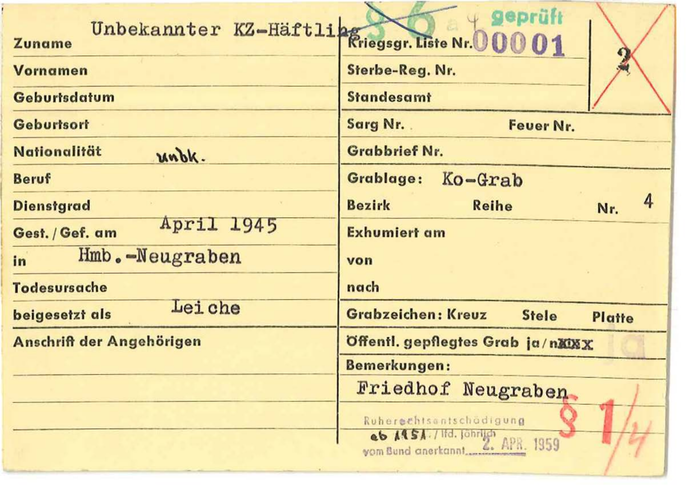 Unbekannter KZ-Häftling
§ 6 a 4 geprüft
Zuname
Kriegsgr. Liste Nr. 00001
2
Vornamen
Sterbe-Reg. Nr.
Geburtsdatum
Standesamt
Geburtsort
Sarg Nr. Feuer Nr.
Nationalität unbk.
Grabbrief Nr.
Beruf
Grablage: Ko-Grab
Dienstgrad
Bezirk Reihe Nr. 4
Gest./Gef. am April 1945
Exhumiert am
in Hmb.-Neugraben
von
Todesursache
nach
beigesetzt als Leiche
Grabzeichen: Kreuz Stele Platte
Anschrift der Angehörigen
Öffentl. gepflegtes Grab ja/
ja
Bemerkungen:
Friedhof Neugraben
Ruherechtsentschädigung
ab 1951./lfd. jährlich
vom Bund anerkannt 2. APR. 1959
§ 1/4